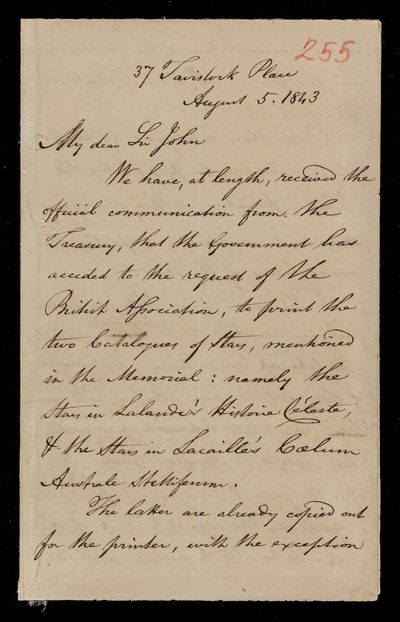 255
37 Tavistock Place
August 5. 1843
My dear Sir John
We have, at length, received the
official communication from the
Treasury, that the Government has
acceded to the request of the
British Association, to print the
two Catalogues of Stars, mentioned
in the Memorial: namely the
Stars in Lalande's Histoire Céleste,
& the Stars in Lacaille's Cœlum
Australe Stelliferum.
The latter are already copied out
for the printer, with the exception